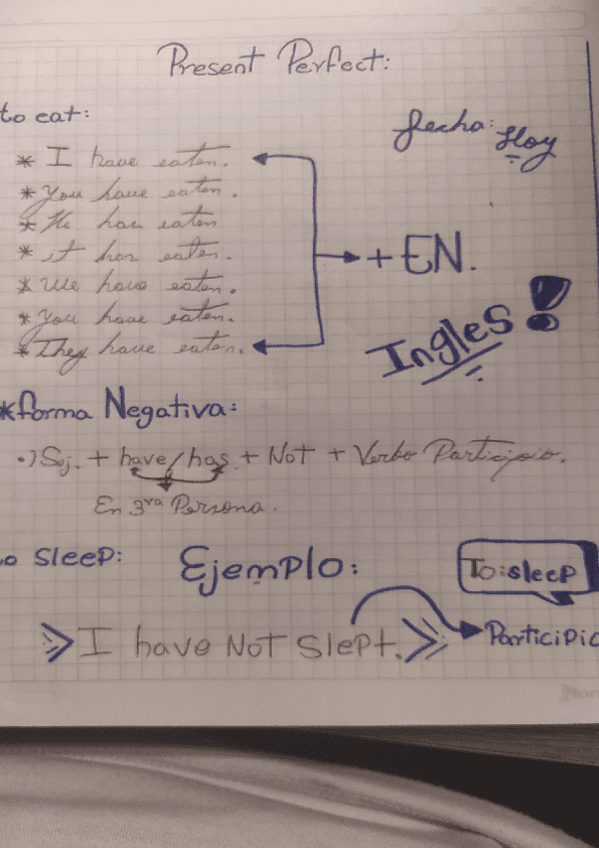 Present Perfect:
to eat:
fecha: Hoy
* I have eaten.
* You have eaten.
* He has eaten
* it has eaten.
* We have eaten.
* You have eaten.
* They have eaten.
+EN.
Ingles!
*forma Negativa:
•) Suj. + have/has + Not + Verbo Participio.
En 3ra Persona.
to sleep:
Ejemplo:
To:sleep
I have NoT Slept.
Participio